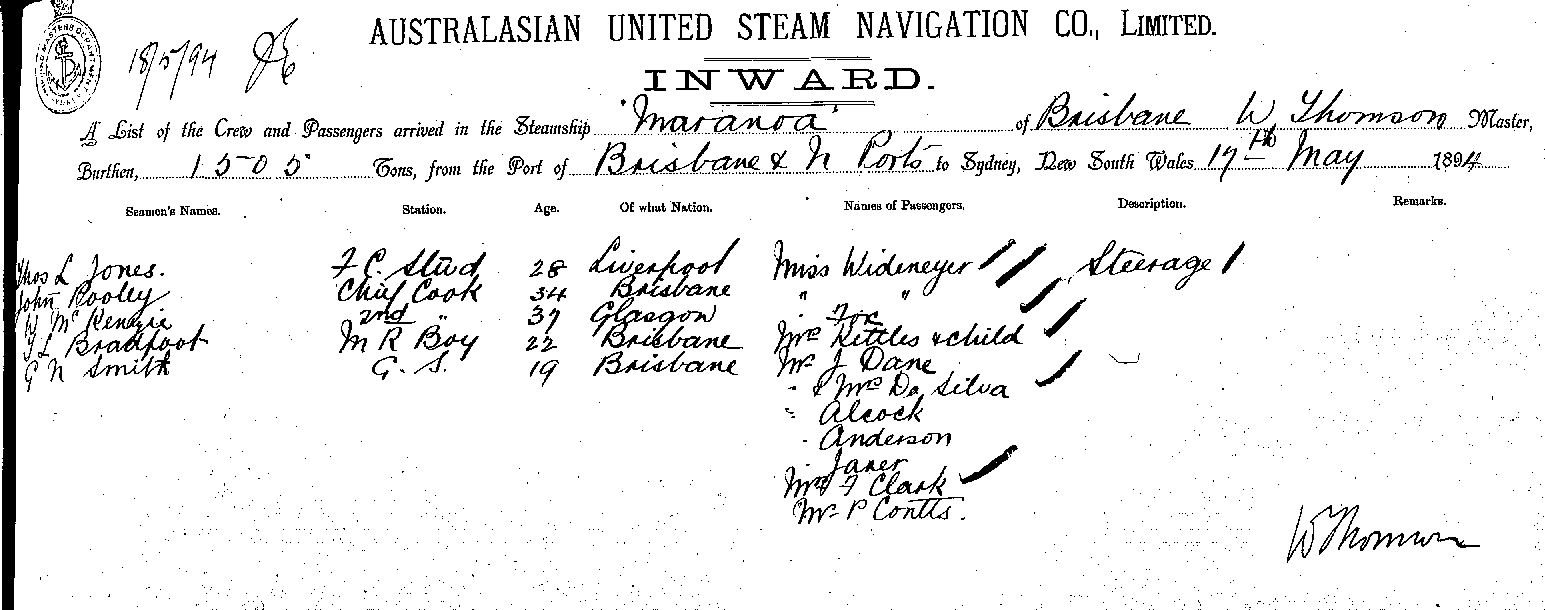 18/5/94
AUSTRALASIAN UNITED STEAM NAVIGATION CO., LIMITED.
INWARD.
A List of the Crew and Passengers arrived in the Steamship "Maranoa" of Brisbane W Thomson Master,
Burthen, 1505 Tons, from the Port of Brisbane & N Ports to Sydney, New South Wales 17th May 1894
Seamen's Names. Station. Age. Of what Nation. Names of Passengers. Description. Remarks.
Thos L Jones. F C Stud 28 Liverpool Miss Wideneyer Steerage 1
John Pooley Chief Cook 34 Brisbane " "
McKenzie 2nd " 37 Glasgow " Fox
L Bradfoot M R Boy 22 Brisbane Mrs Kettles & child
G N Smith G. S. 19 Brisbane Mr J Dane
" & Mrs Da Silva
" Alcock
" Anderson
" Janer
Mrs F Clark
Mr P Contts.
W Thomson